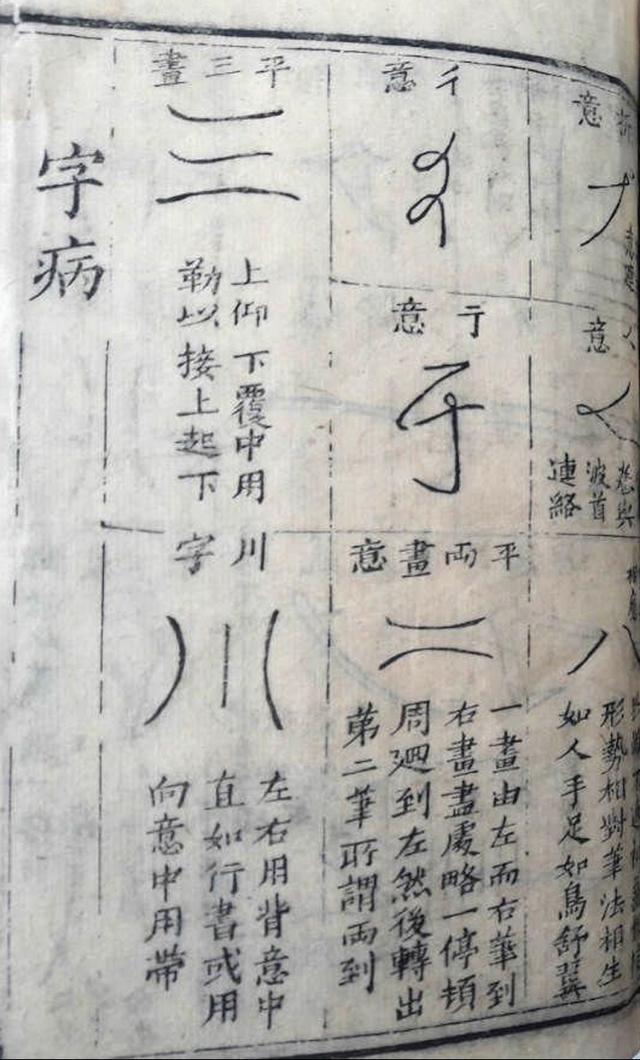 意
意
波首
連絡
形勢相對筆法相生
如人手足如鳥舒翼
彳意
亍意
平両畫意
一畫由左而右筆到
右畫盡處略一停頓
周廻到左然後轉出
第二筆所謂両到
平三畫
上仰下覆中用
勒以接上起下
川字
左右用背意中
直如行書或用
向意中用帶
字病